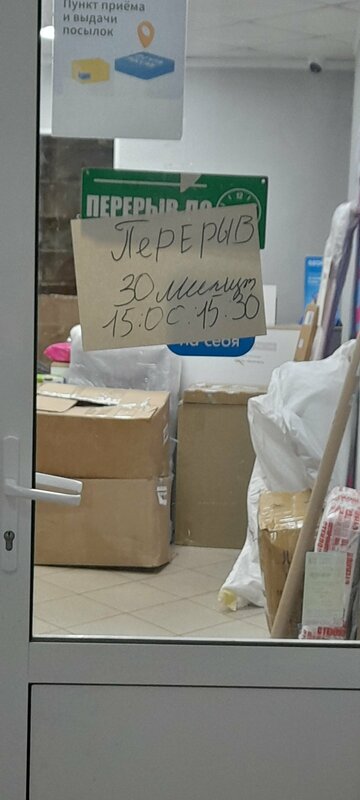 Пункт приёма
и выдачи
посылок
ПЕРЕРЫВ ДО
ПЕРЕРЫВ
30 минут
15:00 : 15:30
на себя